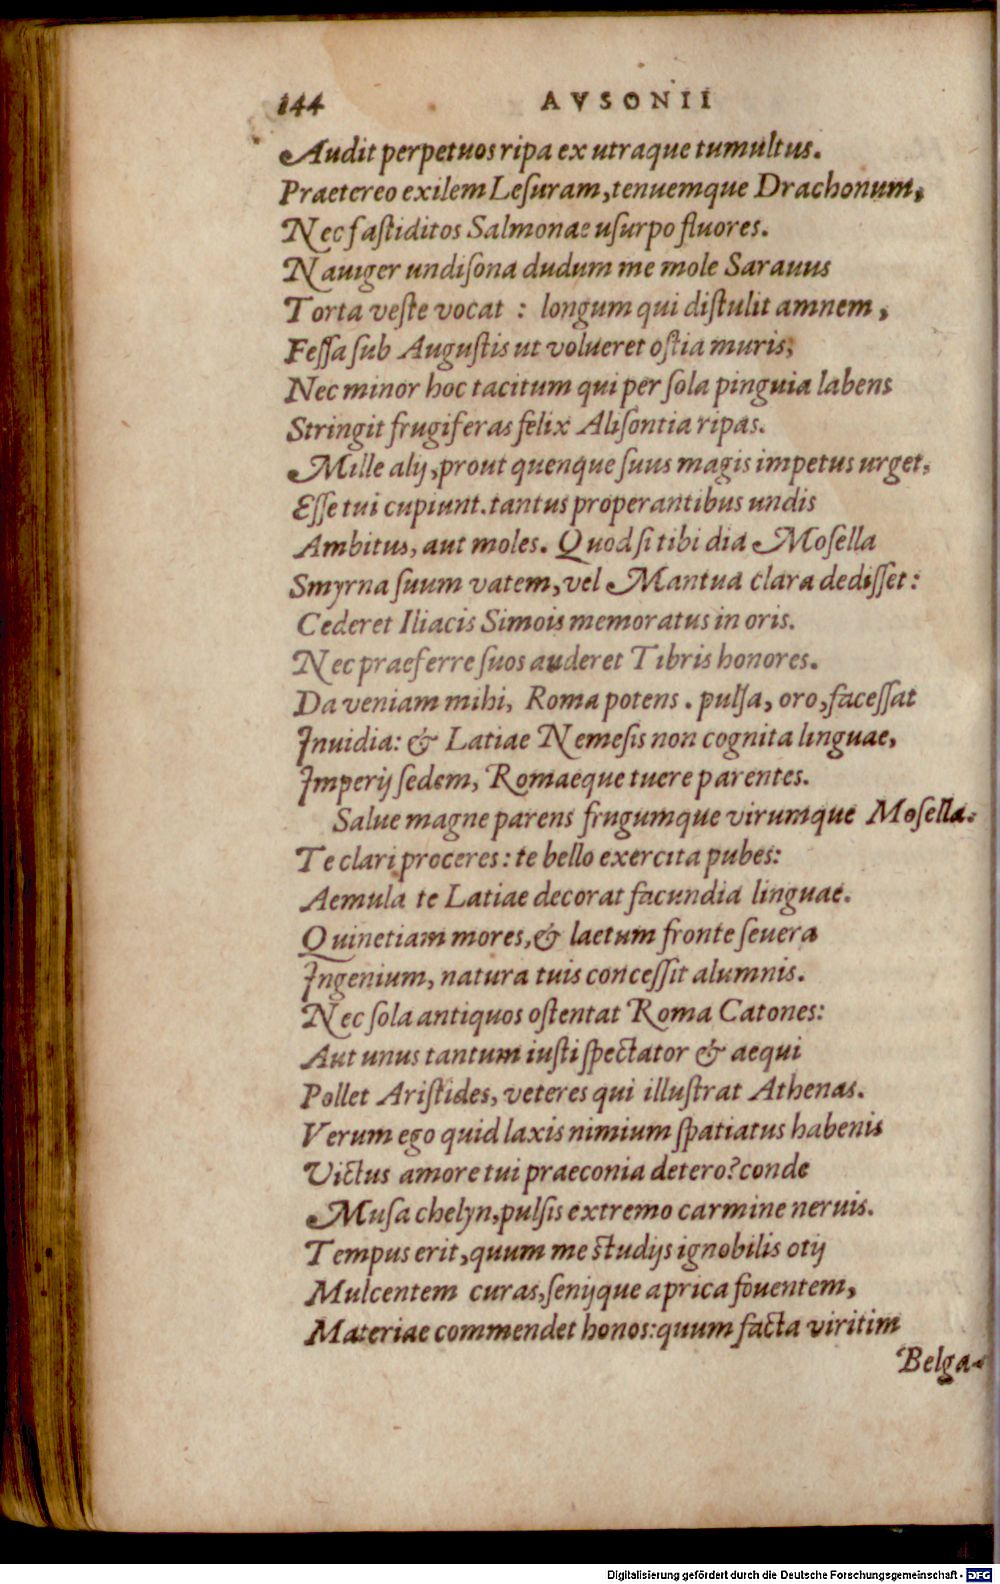 144 AVSONII
Audit perpetuos ripa ex utraque tumultus.
Praetereo exilem Leſuram, tenuemque Drachonum,
Nec faſtiditos Salmonae uſurpo fluores.
Nauiger undiſona dudum me mole Sarauus
Torta veſte vocat : longum qui diſtulit amnem,
Feſſa ſub Auguſtis ut volueret oſtia muris,
Nec minor hoc tacitum qui per ſola pinguia labens
Stringit frugiferas felix Aliſontia ripas.
Mille alij, prout quenque ſuus magis impetus urget,
Eſſe tui cupiunt. tantus properantibus undis
Ambitus, aut moles. Quod ſi tibi dia Moſella
Smyrna ſuum vatem, vel Mantua clara dediſſet:
Cederet Iliacis Simois memoratus in oris.
Nec praeferre ſuos auderet Tibris honores.
Da veniam mihi, Roma potens. pulſa, oro, faceſſat
Inuidia: & Latiae Nemeſis non cognita linguae,
Imperij ſedem, Romaeque tuere parentes.
Salue magne parens frugumque virumque Moſella.
Te clari proceres: te bello exercita pubes:
Aemula te Latiae decorat facundia linguae.
Quinetiam mores, & laetum fronte ſeuera
Ingenium, natura tuis conceſſit alumnis.
Nec ſola antiquos oſtentat Roma Catones:
Aut unus tantum iuſti ſpectator & aequi
Pollet Ariſtides, veteres qui illuſtrat Athenas.
Verum ego quid laxis nimium ſpatiatus habenis
Victus amore tui praeconia detero? conde
Muſa chelyn, pulſis extremo carmine neruis.
Tempus erit, quum me ſtudijs ignobilis otij
Mulcentem curas, ſenijque aprica fouentem,
Materiae commendet honos: quum facta viritim
Belga-
Digitalisierung gefördert durch die Deutsche Forschungsgemeinschaft - DFG